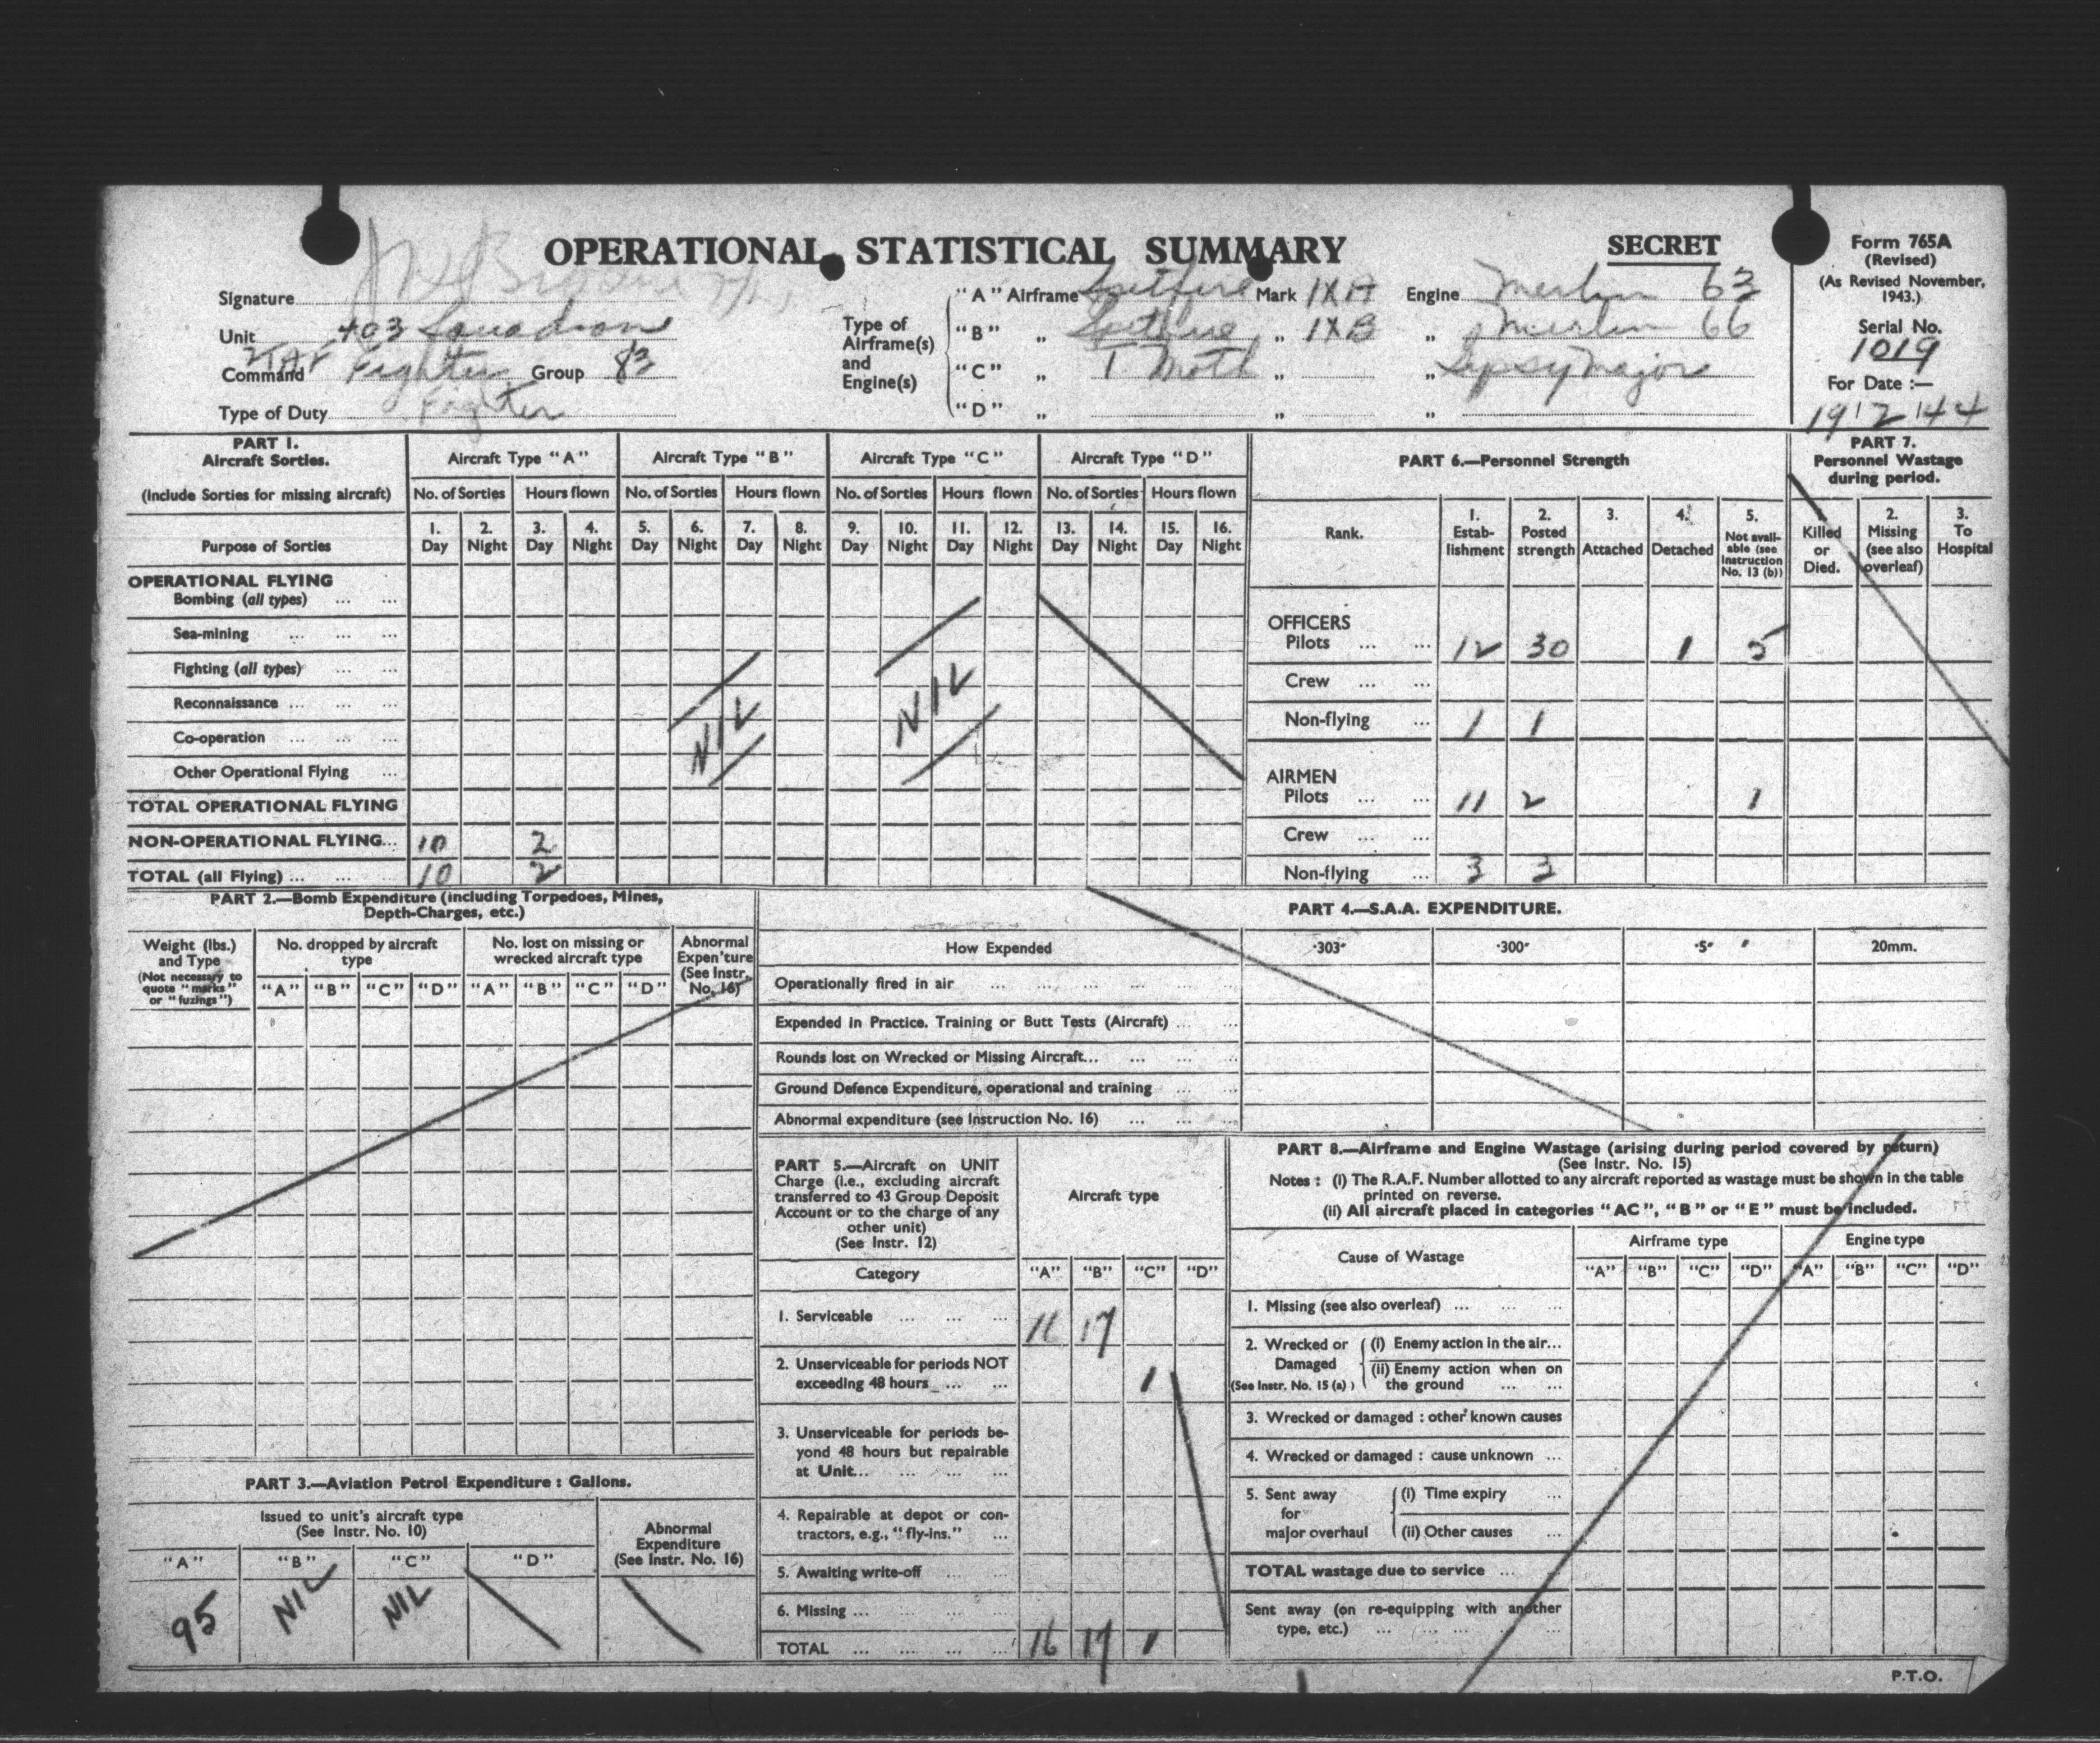 OPERATIONAL STATISTICAL SUMMARY
SECRET
Form 765A
(Revised)
(As Revised November,
1943.)
Serial No.
1019
For Date :—
19/2/44
Signature
Unit 403 Squadron
2TAF
Command Fighter Group 83
Type of Duty Fighter
Type of
Airframe(s)
and
Engine(s)
"A" Airframe Spitfire Mark IXA Engine Merlin 63
"B" „ Spitfire „ IXB „ Merlin 66
"C" „ T. Moth „ „ Gipsy Major
"D" „ „ „
PART 1.
Aircraft Sorties.
(Include Sorties for missing aircraft)
Aircraft Type "A" Aircraft Type "B" Aircraft Type "C" Aircraft Type "D"
No. of Sorties Hours flown No. of Sorties Hours flown No. of Sorties Hours flown No. of Sorties Hours flown
Purpose of Sorties
1. Day 2. Night 3. Day 4. Night 5. Day 6. Night 7. Day 8. Night 9. Day 10. Night 11. Day 12. Night 13. Day 14. Night 15. Day 16. Night
OPERATIONAL FLYING
Bombing (all types) ... ...
Sea-mining ... ... ...
Fighting (all types) ... ...
Reconnaissance ... ... ...
Co-operation ... ... ...
Other Operational Flying ...
NIL NIL
TOTAL OPERATIONAL FLYING
NON-OPERATIONAL FLYING... 10 2
TOTAL (all Flying) ... ... ... 10 2
PART 6.—Personnel Strength
Rank.
1. Estab-lishment
2. Posted strength
3. Attached
4. Detached
5. Not avail-able (see Instruction No. 13 (b))
OFFICERS
Pilots ... ... 12 30 1 5
Crew ... ...
Non-flying ... 1 1
AIRMEN
Pilots ... ... 11 2 1
Crew ... ...
Non-flying ... 3 3
PART 7.
Personnel Wastage
during period.
1. Killed or Died.
2. Missing (see also overleaf)
3. To Hospital
PART 2.—Bomb Expenditure (including Torpedoes, Mines,
Depth-Charges, etc.)
Weight (lbs.)
and Type
(Not necessary to
quote "marks"
or "fuzings")
No. dropped by aircraft
type
No. lost on missing or
wrecked aircraft type
Abnormal
Expen'ture
(See Instr.
No. 16)
"A" "B" "C" "D" "A" "B" "C" "D"
PART 4.—S.A.A. EXPENDITURE.
How Expended ·303" ·300" ·5" 20mm.
Operationally fired in air ... ... ... ... ... ...
Expended in Practice. Training or Butt Tests (Aircraft) ... ...
Rounds lost on Wrecked or Missing Aircraft... ... ... ...
Ground Defence Expenditure, operational and training ... ...
Abnormal expenditure (see Instruction No. 16) ... ... ...
PART 3.—Aviation Petrol Expenditure : Gallons.
Issued to unit's aircraft type
(See Instr. No. 10)
Abnormal
Expenditure
(See Instr. No. 16)
"A" "B" "C" "D"
95 NIL NIL
PART 5.—Aircraft on UNIT
Charge (i.e., excluding aircraft
transferred to 43 Group Deposit
Account or to the charge of any
other unit)
(See Instr. 12)
Aircraft type
Category "A" "B" "C" "D"
1. Serviceable ... ... ... 16 17
2. Unserviceable for periods NOT
exceeding 48 hours ... ... 1
3. Unserviceable for periods be-
yond 48 hours but repairable
at Unit... ... ... ...
4. Repairable at depot or con-
tractors, e.g., "fly-ins." ...
5. Awaiting write-off ... ...
6. Missing ... ... ... ...
TOTAL ... ... ... ... 16 17 1
PART 8.—Airframe and Engine Wastage (arising during period covered by return)
(See Instr. No. 15)
Notes : (i) The R.A.F. Number allotted to any aircraft reported as wastage must be shown in the table
printed on reverse.
(ii) All aircraft placed in categories "AC", "B" or "E" must be included.
Cause of Wastage
Airframe type Engine type
"A" "B" "C" "D" "A" "B" "C" "D"
1. Missing (see also overleaf) ... ... ...
2. Wrecked or Damaged (See Instr. No. 15 (a))
(i) Enemy action in the air...
(ii) Enemy action when on
the ground ... ...
3. Wrecked or damaged : other known causes
4. Wrecked or damaged : cause unknown ...
5. Sent away for major overhaul
(i) Time expiry ...
(ii) Other causes ...
TOTAL wastage due to service ...
Sent away (on re-equipping with another
type, etc.) ... ... ... ... ...
P.T.O.